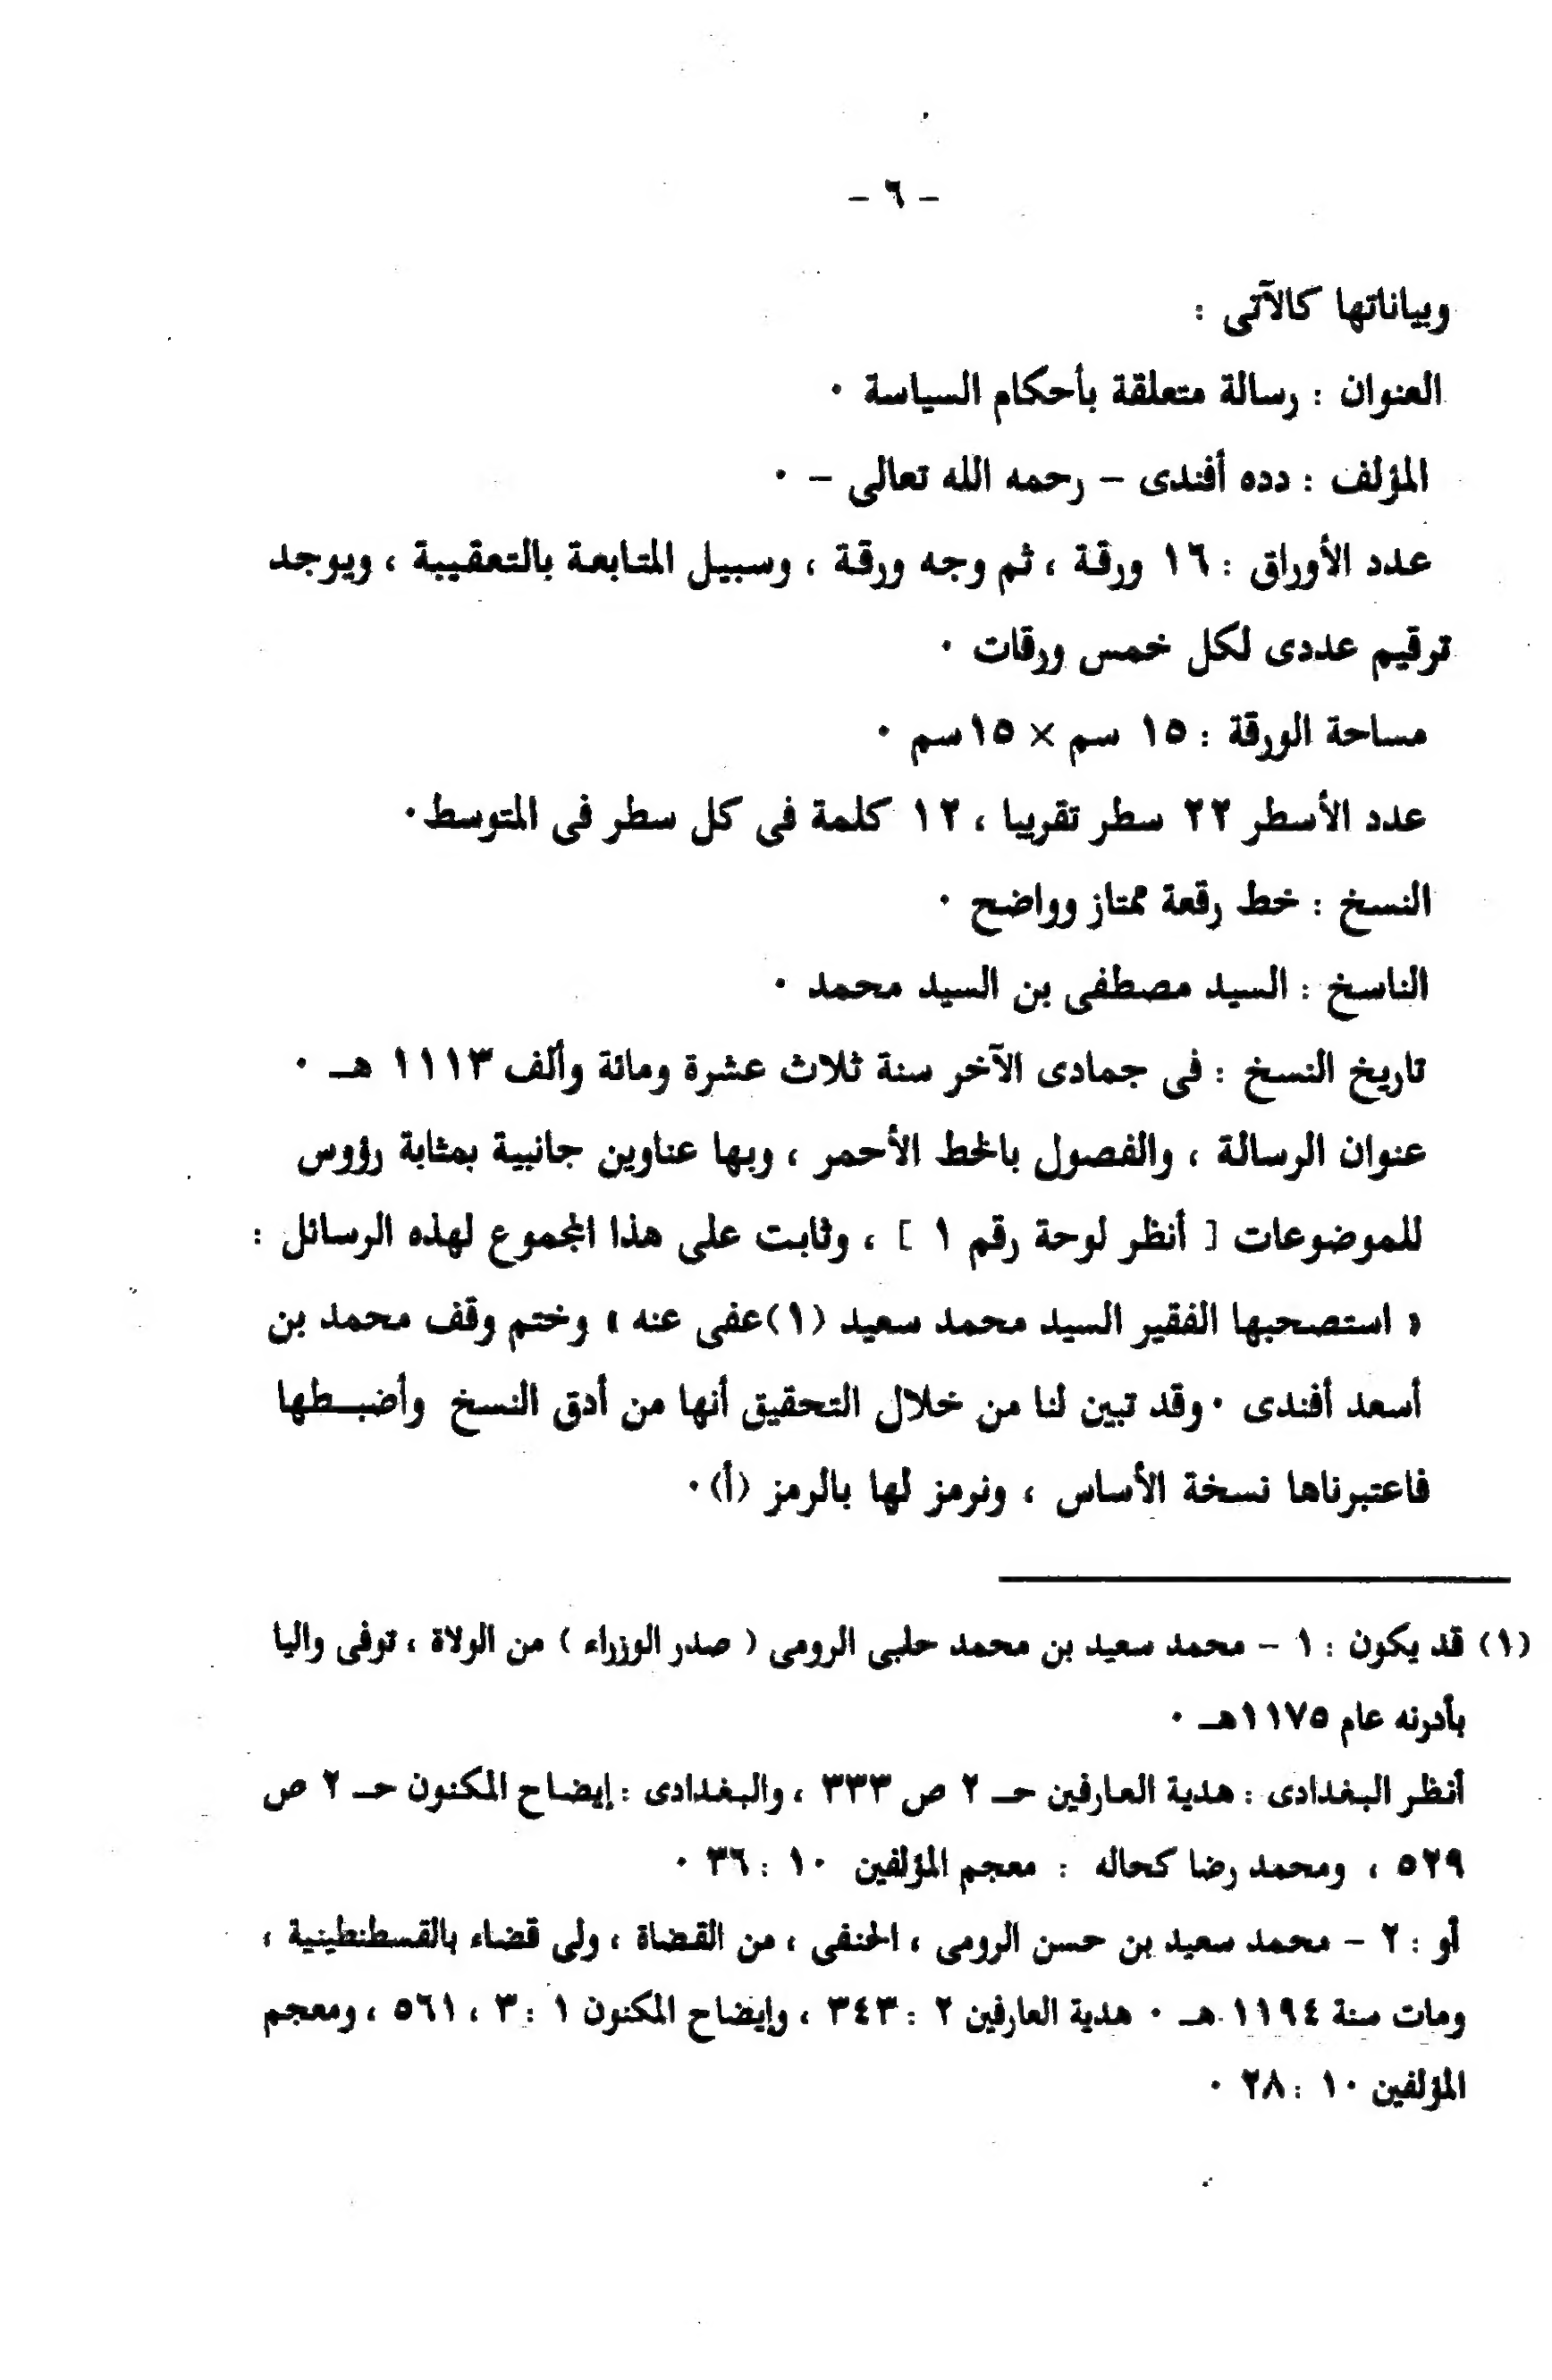 – ٦ –
وبياناتها كالآتى :
العنوان : رسالة متعلقة بأحكام السياسة ٠
المؤلف : دده أفندى – رحمه الله تعالى – ٠
عدد الأوراق : ١٦ ورقة ، ثم وجه ورقة ، وسبيل المتابعة بالتعقيبة ، ويوجد
ترقيم عددى لكل خمس ورقات ٠
مساحة الورقة : ١٥ سم × ١٥سم ٠
عدد الأسطر ٢٢ سطر تقريبا ، ١٢ كلمة فى كل سطر فى المتوسط٠
النسخ : خط رقعة ممتاز وواضح ٠
الناسخ : السيد مصطفى بن السيد محمد ٠
تاريخ النسخ : فى جمادى الآخر سنة ثلاث عشرة ومائة وألف ١١١٣ هـ ٠
عنوان الرسالة ، والفصول بالخط الأحمر ، وبها عناوين جانبية بمثابة رؤوس
للموضوعات [ أنظر لوحة رقم ١ ] ، وثابت على هذا المجموع لهذه الرسائل :
« استصحبها الفقير السيد محمد سعيد (١)عفى عنه » وختم وقف محمد بن
أسعد أفندى ٠ وقد تبين لنا من خلال التحقيق أنها من أدق النسخ وأضبـطها
فاعتبرناها نسخة الأساس ، ونرمز لها بالرمز (أ)٠
(١) قد يكون : ١ – محمد سعيد بن محمد حلبى الرومى ( صدر الوزراء ) من الولاة ، توفى واليا
بأدرنه عام ١١٧٥هـ ٠
أنظر البغدادى : هدية العارفين حـ ٢ ص ٣٣٣ ، والبغدادى : إيضاح المكنون حـ ٢ ص
٥٢٩ ، ومحمد رضا كحاله : معجم المؤلفين ١٠ : ٣٦ ٠
أو : ٢ – محمد سعيد بن حسن الرومى ، الحنفى ، من القضاة ، ولى قضاء بالقسطنطينية ،
ومات سنة ١١٩٤ هـ ٠ هدية العارفين ٢ : ٣٤٣ ، وإيضاح المكنون ١ : ٣ ، ٥٦١ ، ومعجم
المؤلفين ١٠ : ٢٨ ٠